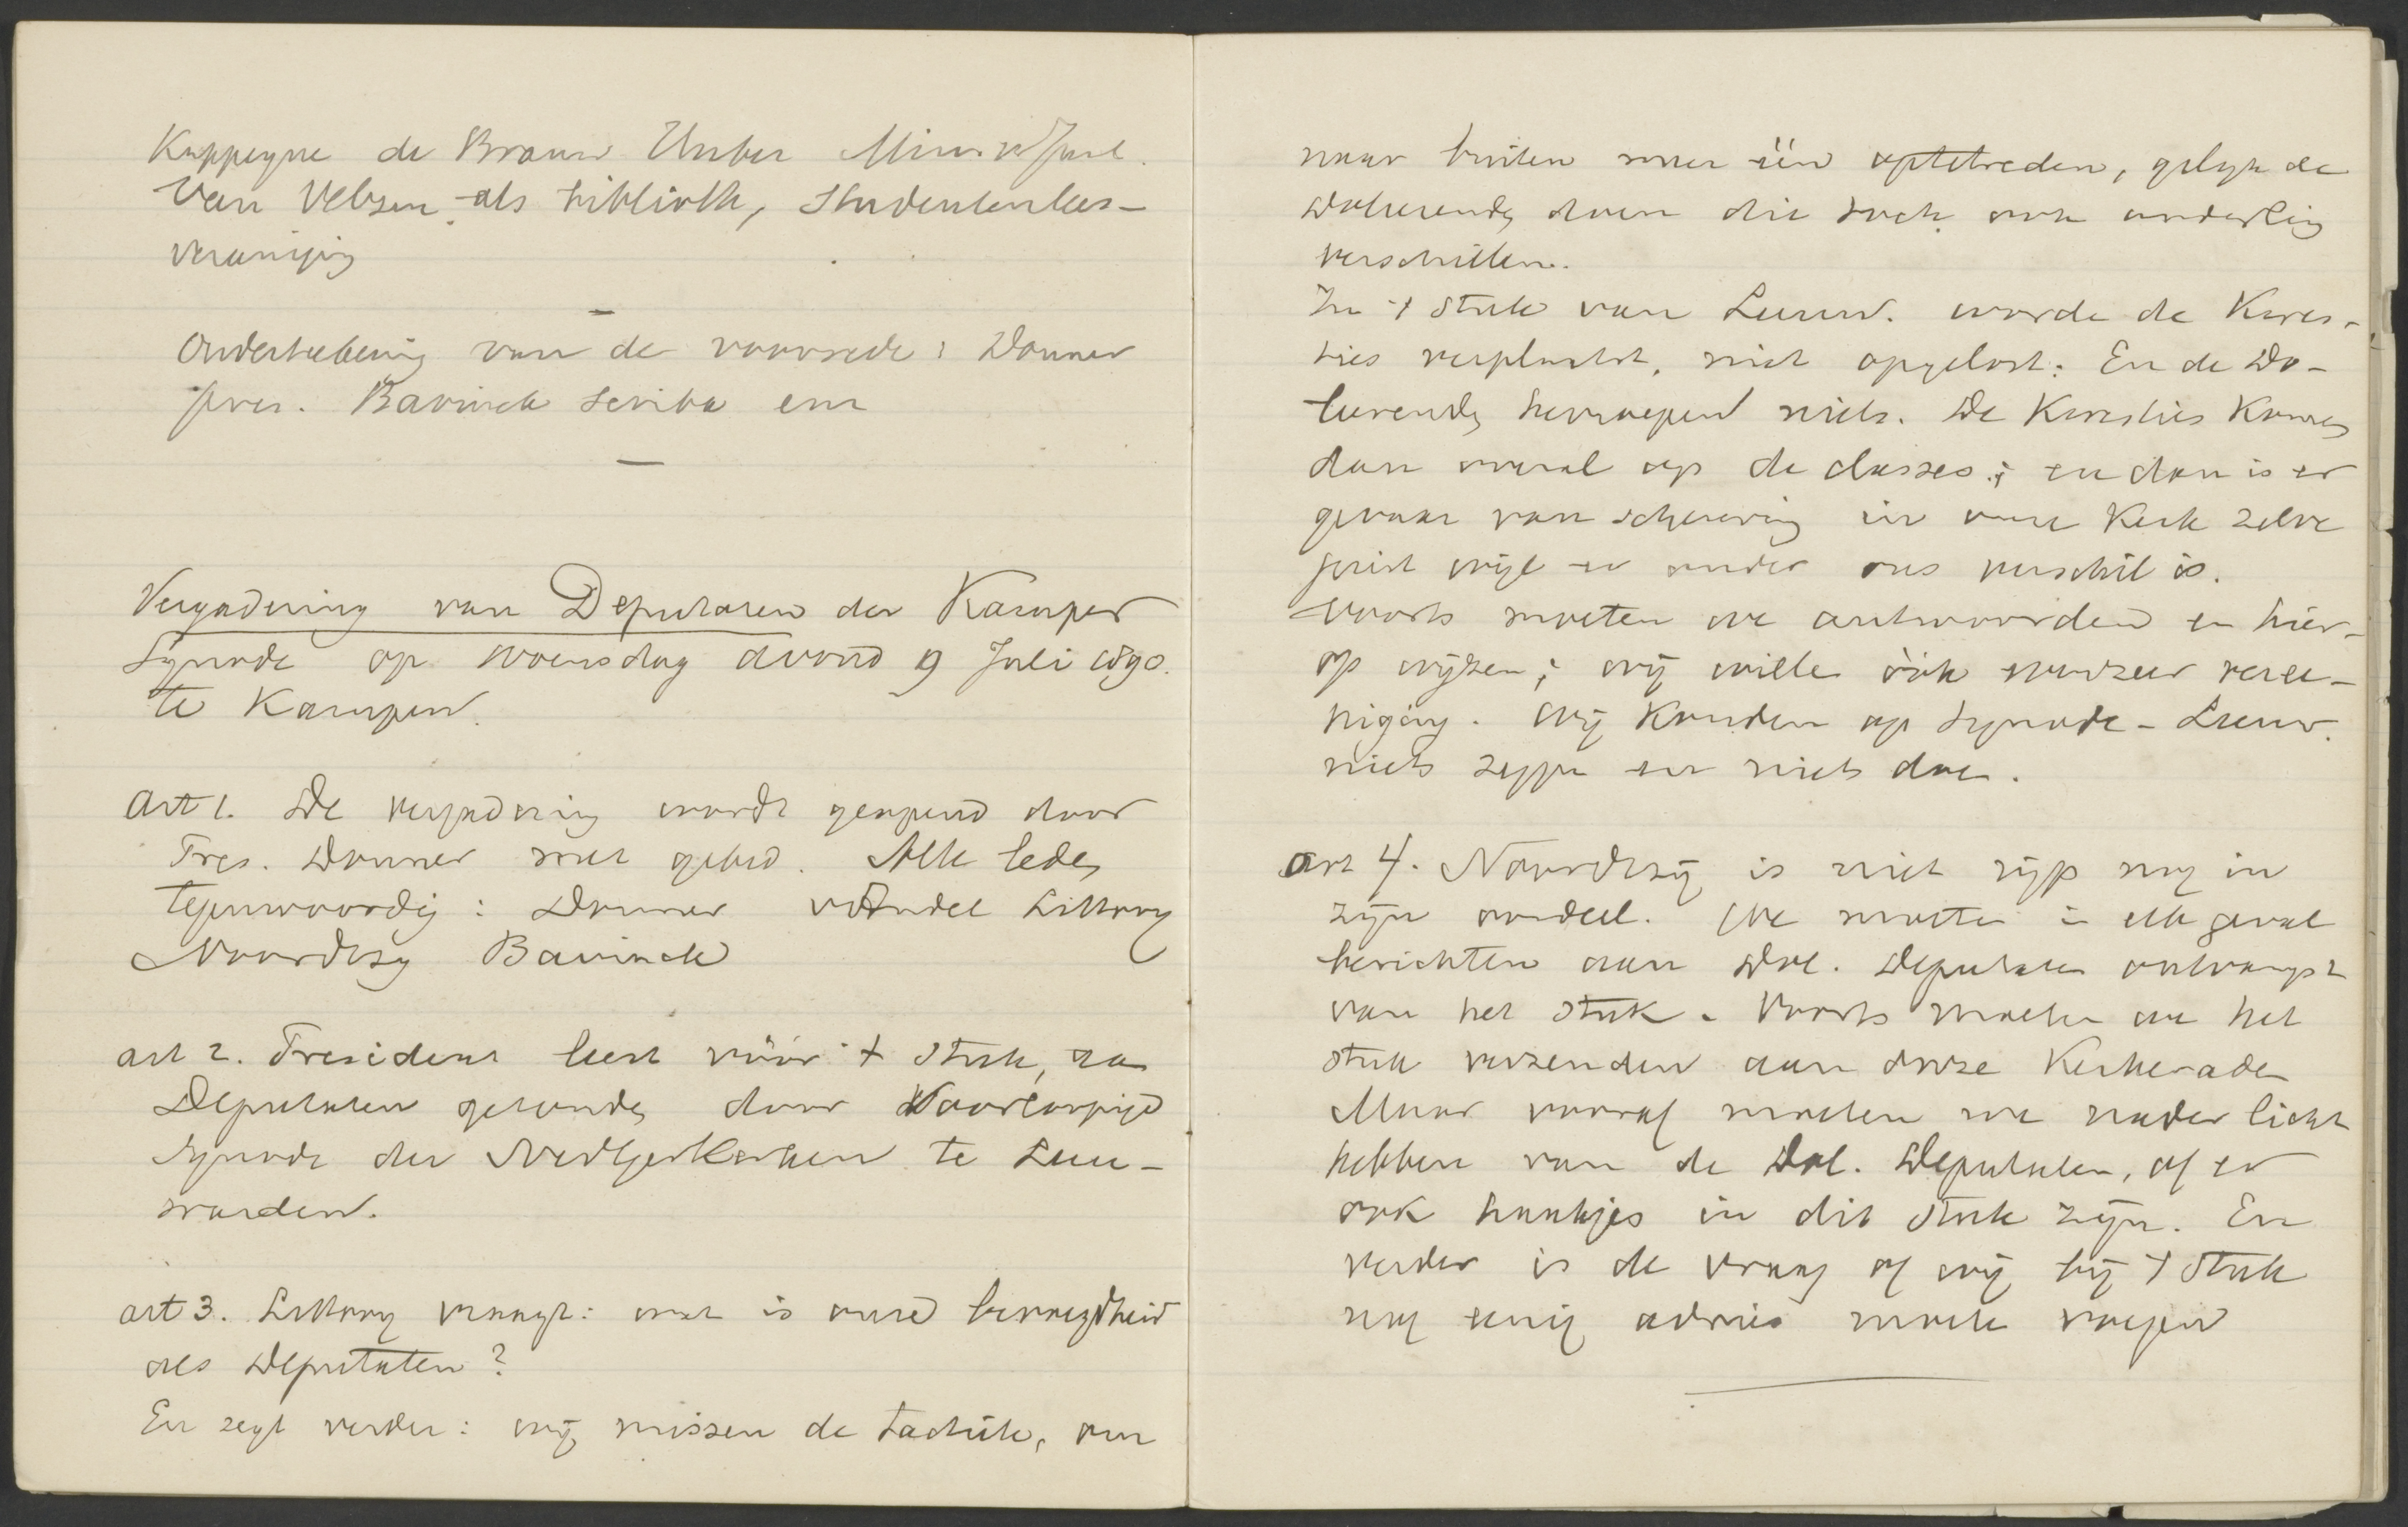 Kappeyne de Brauw Unber Min v Just.
Van Velzen als biblioth, Studentenlees-
vereniging
Onderteekening van de voorrede: Donner
pres. Bavinck scriba enz
Vergadering van Deputaten der Kamper
Synode op woensdag avond 9 Juli 1890.
te Kampen.
art 1. De vergadering wordt geopend door
Pres. Donner met gebed. Alle leden
tegenwoordig: Donner vdAndel Littooy
Noordtzij Bavinck
art 2. President leest vóór 't stuk, aan
Deputaten gezonden door Voorloopige
Synode der NedGerKerken te Leeu-
warden.
art 3. Littooy vraagt: wat is onze bevoegdheid
als Deputaten?
En zegt verder: wij missen de tactiek, om
naar buiten meer één optetreden, gelijk de
Doleerenden doen die toch ook onderling
verschillen.
In 't stuk van Leeuw. wordt de Kwes-
ties verplaatst, niet opgelost: En de Do-
leerenden herroepen niets. De Kwesties Komen
dan overal op de classes; en dan is er
gevaar van scheuring in onze Kerk zelve
juist wijl er onder ons verschil is.
Voorts moeten we antwoorden en hier-
op wijzen; wij willen óók evenzeer veree-
niging. Wij Konden op Synode-Leeuw.
niets zeggen en niets doen.
art 4. Noordtzij is niet rijp nog in
zijn oordeel. We moeten in elk geval
berichten aan Dol. Deputaten ontvangst
van het stuk. Voorts moeten we het
stuk verzenden aan onze Kerkeraden
Maar vooraf moeten we nader licht
hebben van de Dol. Deputaten, of er
ook haakjes in dit stuk zijn. En
verder is de vraag of wij bij 't stuk
nog eenig advies moeten voegen